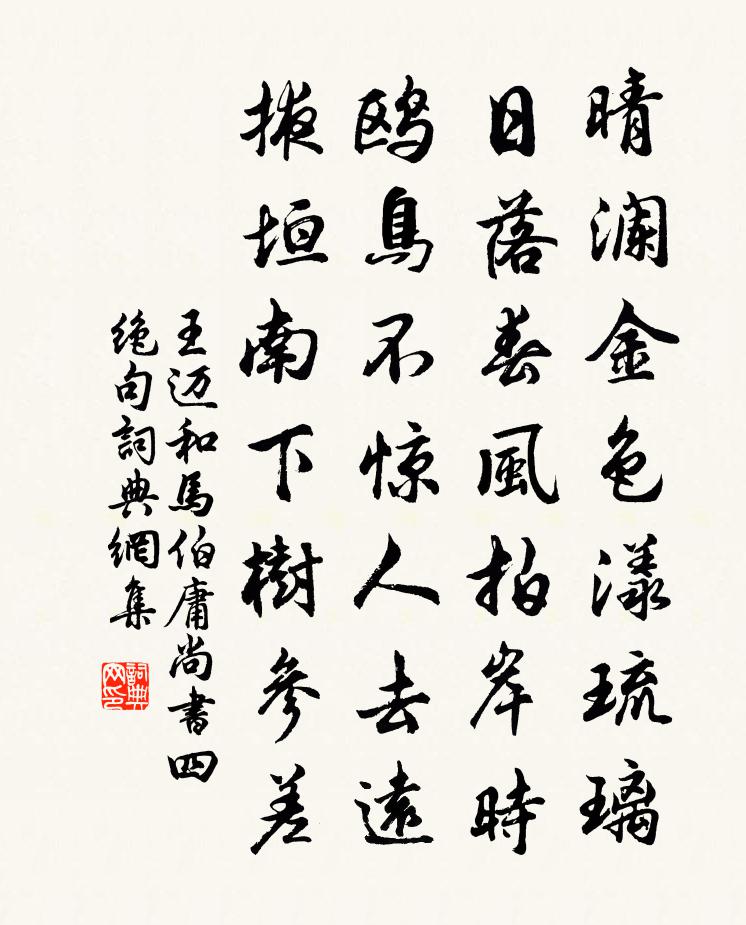 晴瀾金色漾琉璃
日落春風拍岸時
鷗鳥不惊人去遠
掖垣南下樹參差
王迈和馬伯庸尚書四
绝句詞典網集
詞典网印